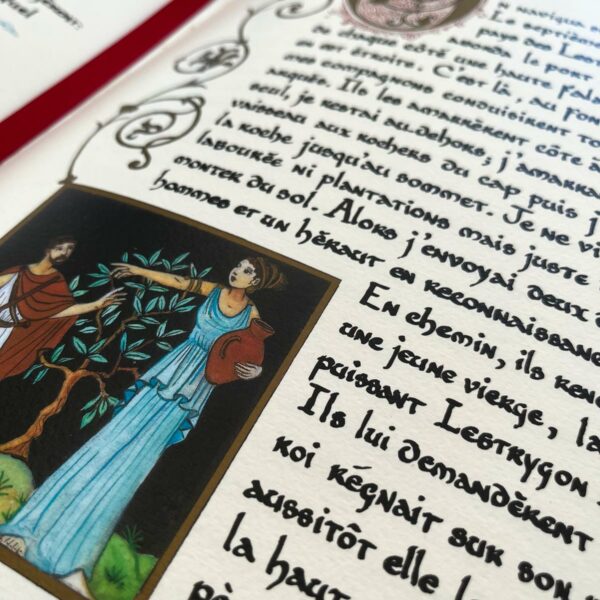 n navigua
Le septième
pays des Les
aborda, le port
de chaque côté une haute fala
en est étroite. C'est là, au fon
mes compagnons conduisirent to
aqués. Ils les amarrèrent côte à
seul, je restai au dehors; j'amarra
vaisseau aux rochers du cap puis j
la roche jusqu'au sommet. Je ne vi
labourée ni plantations mais juste
monter du sol. Alors j'envoyai deux d
hommes et un héraut en reconnaissanc
En chemin, ils renc
une jeune vierge, la
puissant Lestrygon
Ils lui demandèrent
roi régnait sur son
aussitôt elle l
la haut
pè